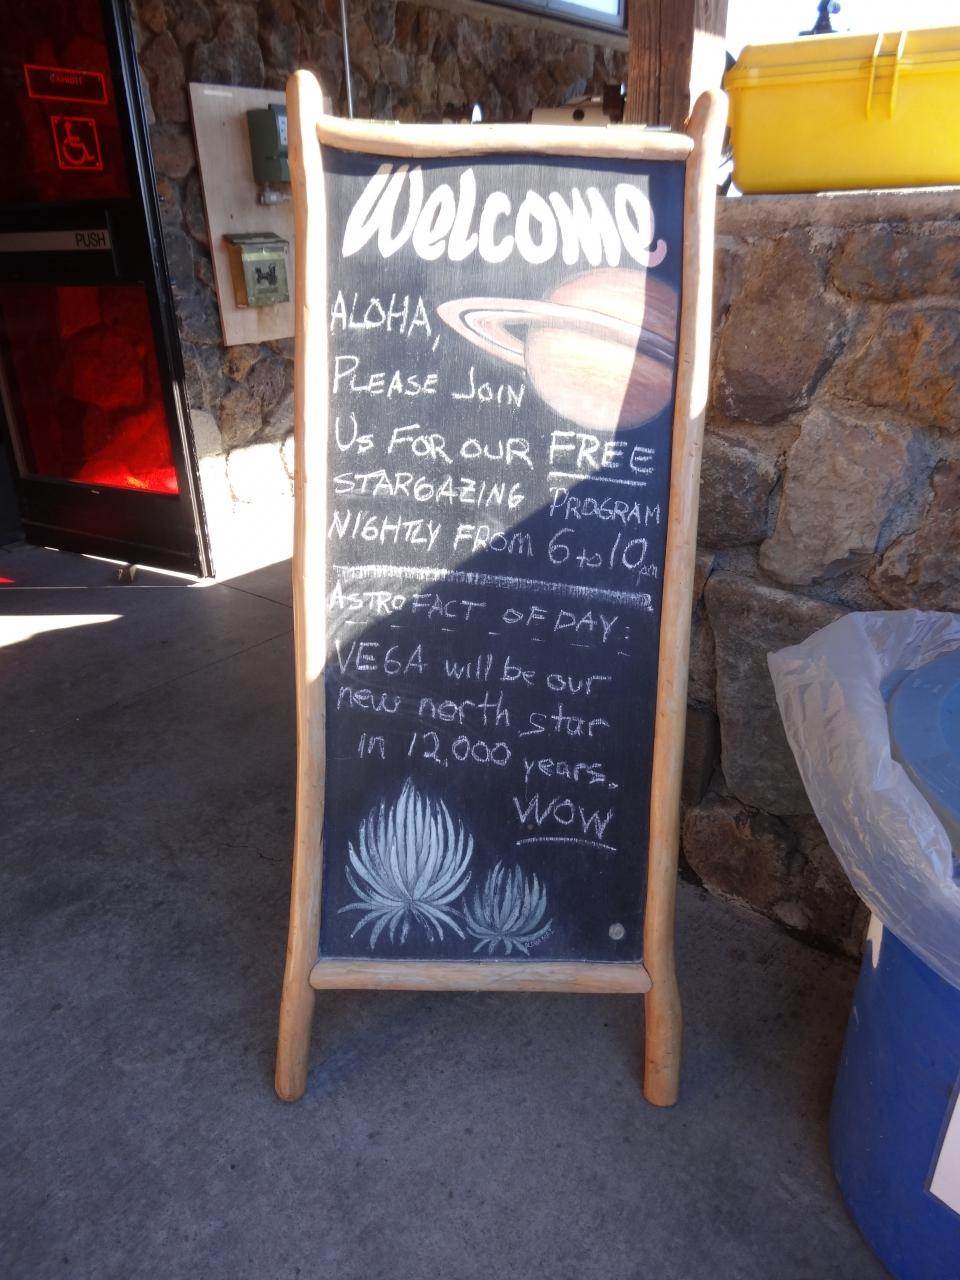 EXHIBIT
PUSH
Welcome
ALOHA,
PLEASE JOIN
US FOR OUR FREE
STARGAZING PROGRAM
NIGHTLY FROM 6 to 10pm
ASTROFACT OF DAY:
VEGA will be our
new north star
in 12,000 years.
WOW